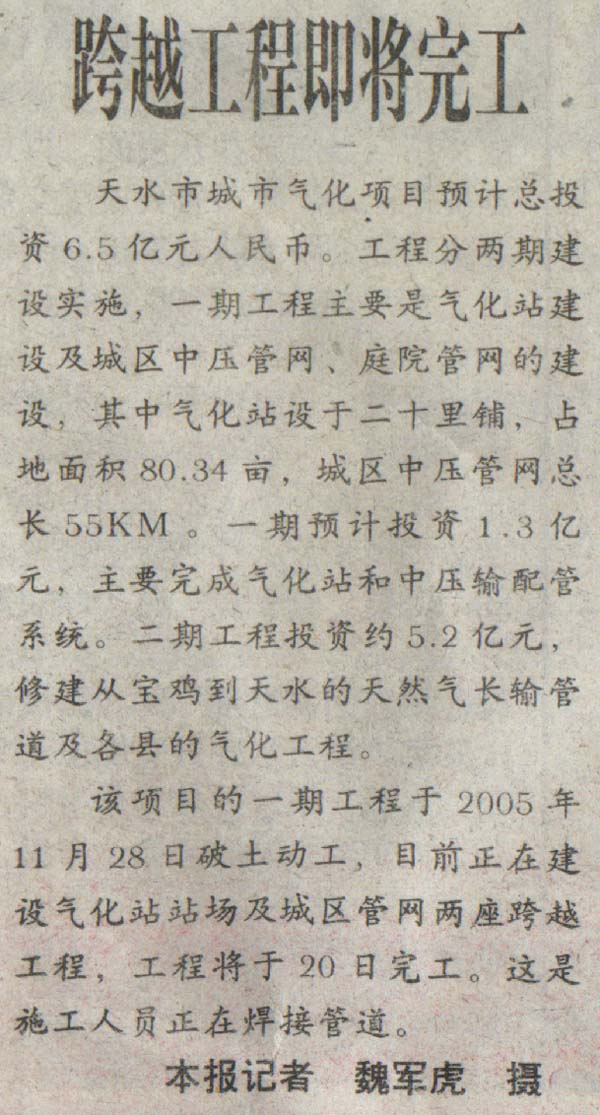 跨越工程即将完工
天水市城市气化项目预计总投
资6.5亿元人民币。工程分两期建
设实施，一期工程主要是气化站建
设及城区中压管网、庭院管网的建
设，其中气化站设于二十里铺，占
地面积80.34亩，城区中压管网总
长55KM。一期预计投资1.3亿
元，主要完成气化站和中压输配管
系统。二期工程投资约5.2亿元，
修建从宝鸡到天水的天然气长输管
道及各县的气化工程。
该项目的一期工程于2005年
11月28日破土动工，目前正在建
设气化站站场及城区管网两座跨越
工程，工程将于20日完工。这是
施工人员正在焊接管道。
本报记者 魏军虎 摄